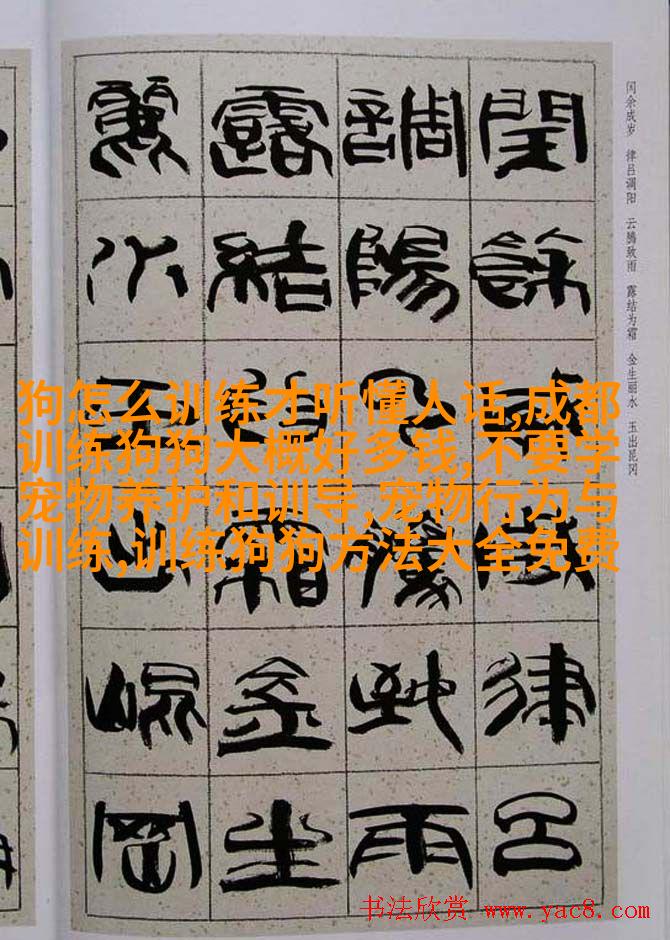 闰余成岁 律吕调阳 云腾致雨 露结为霜 金生丽水 玉出昆冈
閏餘成歲律呂
調陽云騰致雨
露結為霜金生
麗水玉出崐岡
狗怎么训练才听懂人话,成都
训练狗狗大概好多钱,不要学
宠物养护和训导,宠物行为与
训练,训练狗狗方法大全免费
书法欣赏 www.yac8.com